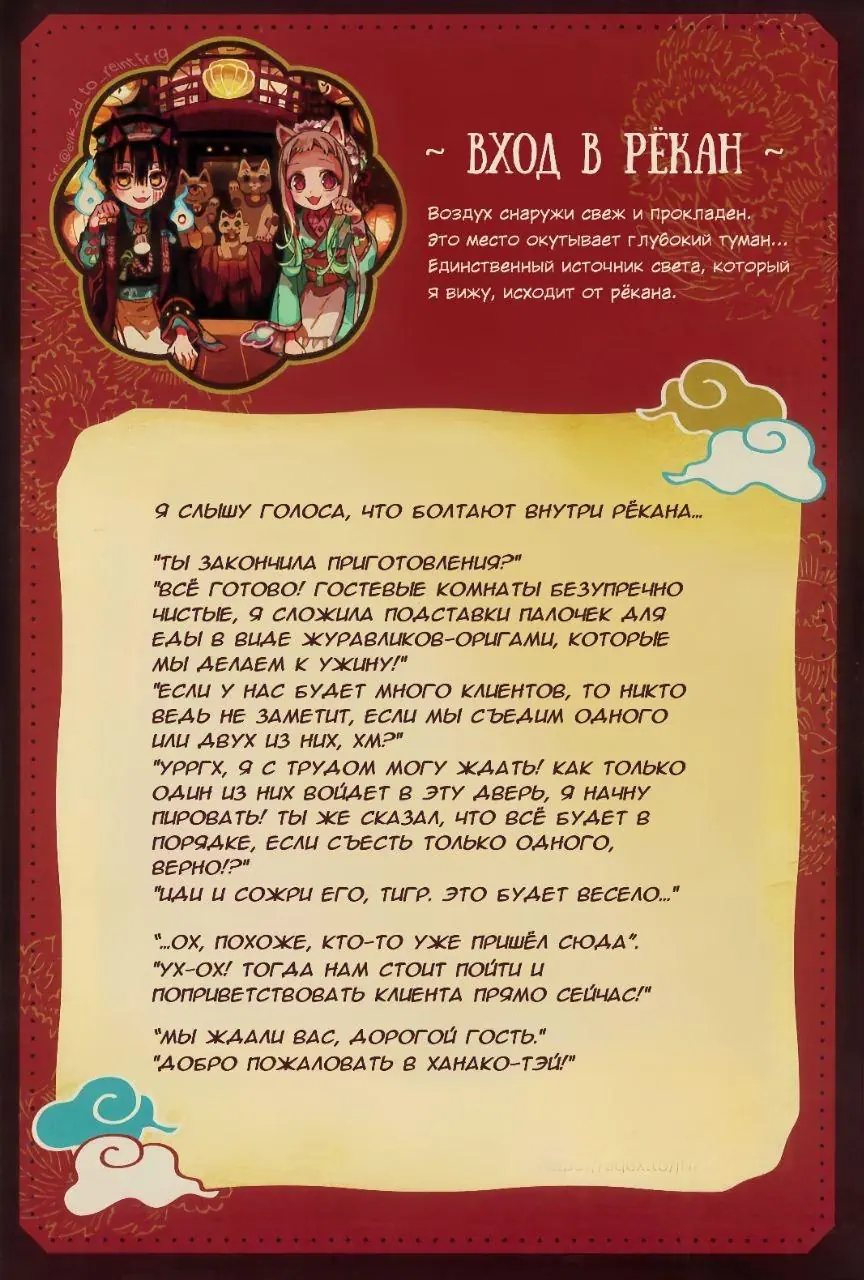 ~ ВХОД В РЁКАН ~
Воздух снаружи свеж и прокладен.
Это место окутывает глубокий туман...
Единственный источник света, который
я вижу, исходит от рёкана.
Я СЛЫШУ ГОЛОСА, ЧТО БОЛТАЮТ ВНУТРИ РЁКАНА...
"ТЫ ЗАКОНЧИЛА ПРИГОТОВЛЕНИЯ?"
"ВСЁ ГОТОВО! ГОСТЕВЫЕ КОМНАТЫ БЕЗУПРЕЧНО
ЧИСТЫЕ, Я СЛОЖИЛА ПОДСТАВКИ ПАЛОЧЕК ДЛЯ
ЕДЫ В ВИДЕ ЖУРАВЛИКОВ-ОРИГАМИ, КОТОРЫЕ
МЫ ДЕЛАЕМ К УЖИНУ!"
"ЕСЛИ У НАС БУДЕТ МНОГО КЛИЕНТОВ, ТО НИКТО
ВЕДЬ НЕ ЗАМЕТИТ, ЕСЛИ МЫ СЪЕДИМ ОДНОГО
ИЛИ ДВУХ ИЗ НИХ, ХМ?"
"УРРГХ, Я С ТРУДОМ МОГУ ЖДАТЬ! КАК ТОЛЬКО
ОДИН ИЗ НИХ ВОЙДЕТ В ЭТУ ДВЕРЬ, Я НАЧНУ
ПИРОВАТЬ! ТЫ ЖЕ СКАЗАЛ, ЧТО ВСЁ БУДЕТ В
ПОРЯДКЕ, ЕСЛИ СЪЕСТЬ ТОЛЬКО ОДНОГО,
ВЕРНО!?"
"ИДИ И СОЖРИ ЕГО, ТИГР. ЭТО БУДЕТ ВЕСЕЛО..."
"...ОХ, ПОХОЖЕ, КТО-ТО УЖЕ ПРИШЁЛ СЮДА".
"УХ-ОХ! ТОГДА НАМ СТОИТ ПОЙТИ И
ПОПРИВЕТСТВОВАТЬ КЛИЕНТА ПРЯМО СЕЙЧАС!"
"МЫ ЖДАЛИ ВАС, ДОРОГОЙ ГОСТЬ."
"ДОБРО ПОЖАЛОВАТЬ В ХАНАКО-ТЭЙ!"